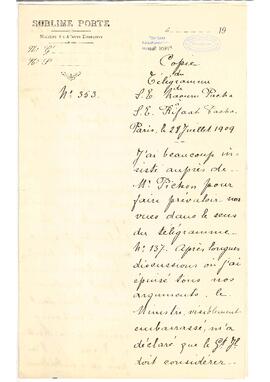 SUBLIME PORTE
19
Nº Gl
Nº Sl
Nº 353.
Copie
du
Télégramme
de
S. E. Naoum Pacha
à
S. E. Rifaat Pacha.
Paris, le 28 Juillet 1909
J'ai beaucoup in-
sisté auprès de
Mr Pichon pour
faire prévaloir nos
vues dans le sens
du télégramme
Nº 137. Après longues
discussions où j'ai
épuisé tous nos
arguments, le
Ministre, visiblement
embarrassé, m'a
déclaré que le Gt H.
doit considérer